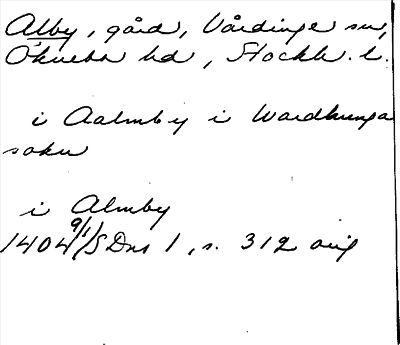 Alby, gård, Vårdinge sn,
Öknebo hd, Stockh. l.
i Aalmby i Wardhunga
sokn
i Almby
1404 9/1 SDns 1, s. 312 orig